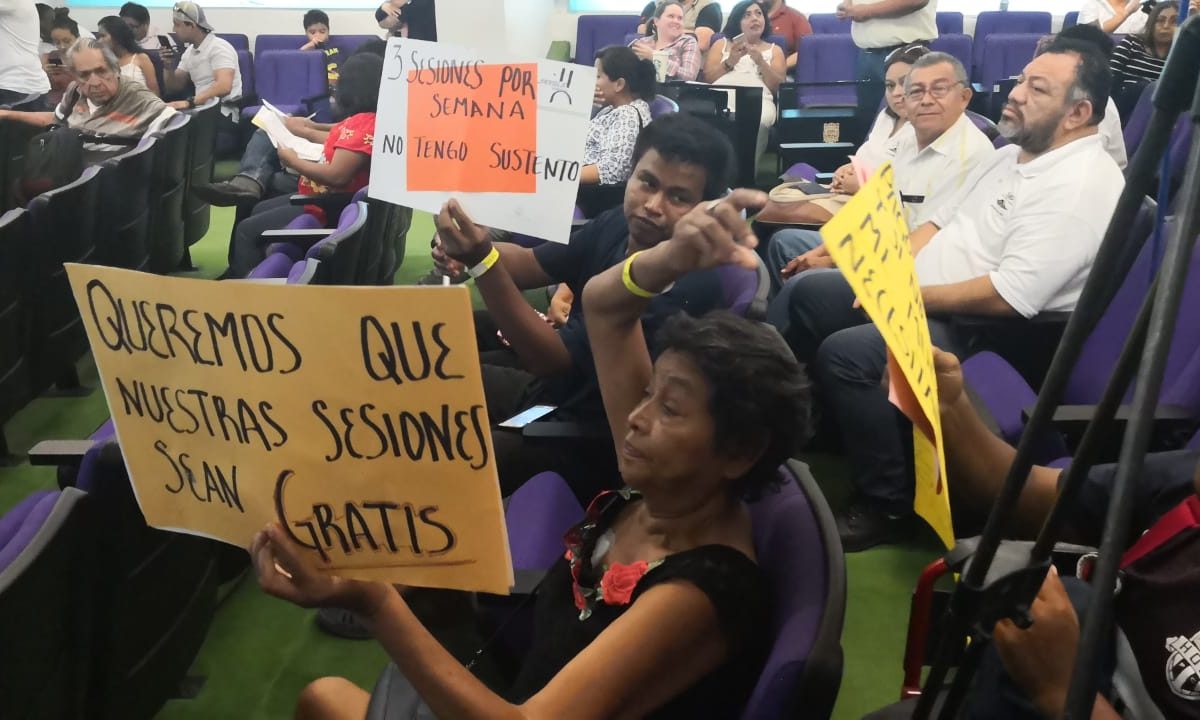 3 SESIONES POR
SEMANA
NO TENGO SUSTENTO
QUEREMOS QUE
NUESTRAS SESIONES
SEAN GRATIS